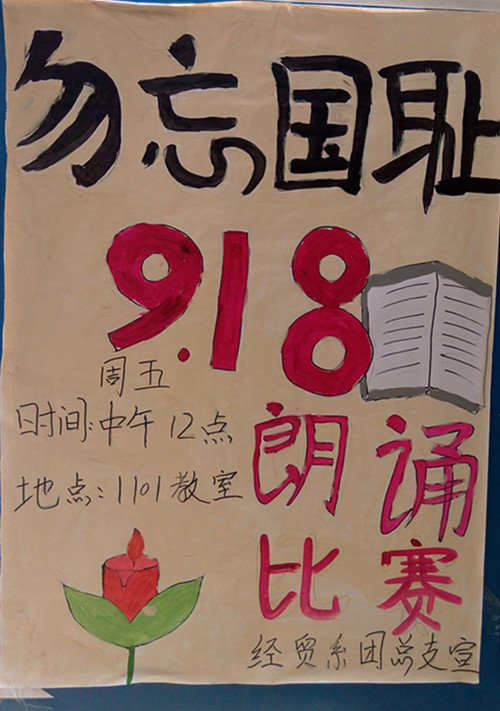 勿忘国耻
9.18
周五
时间:中午12点
地点:1101教室
朗诵
比赛
经贸系团总支宣